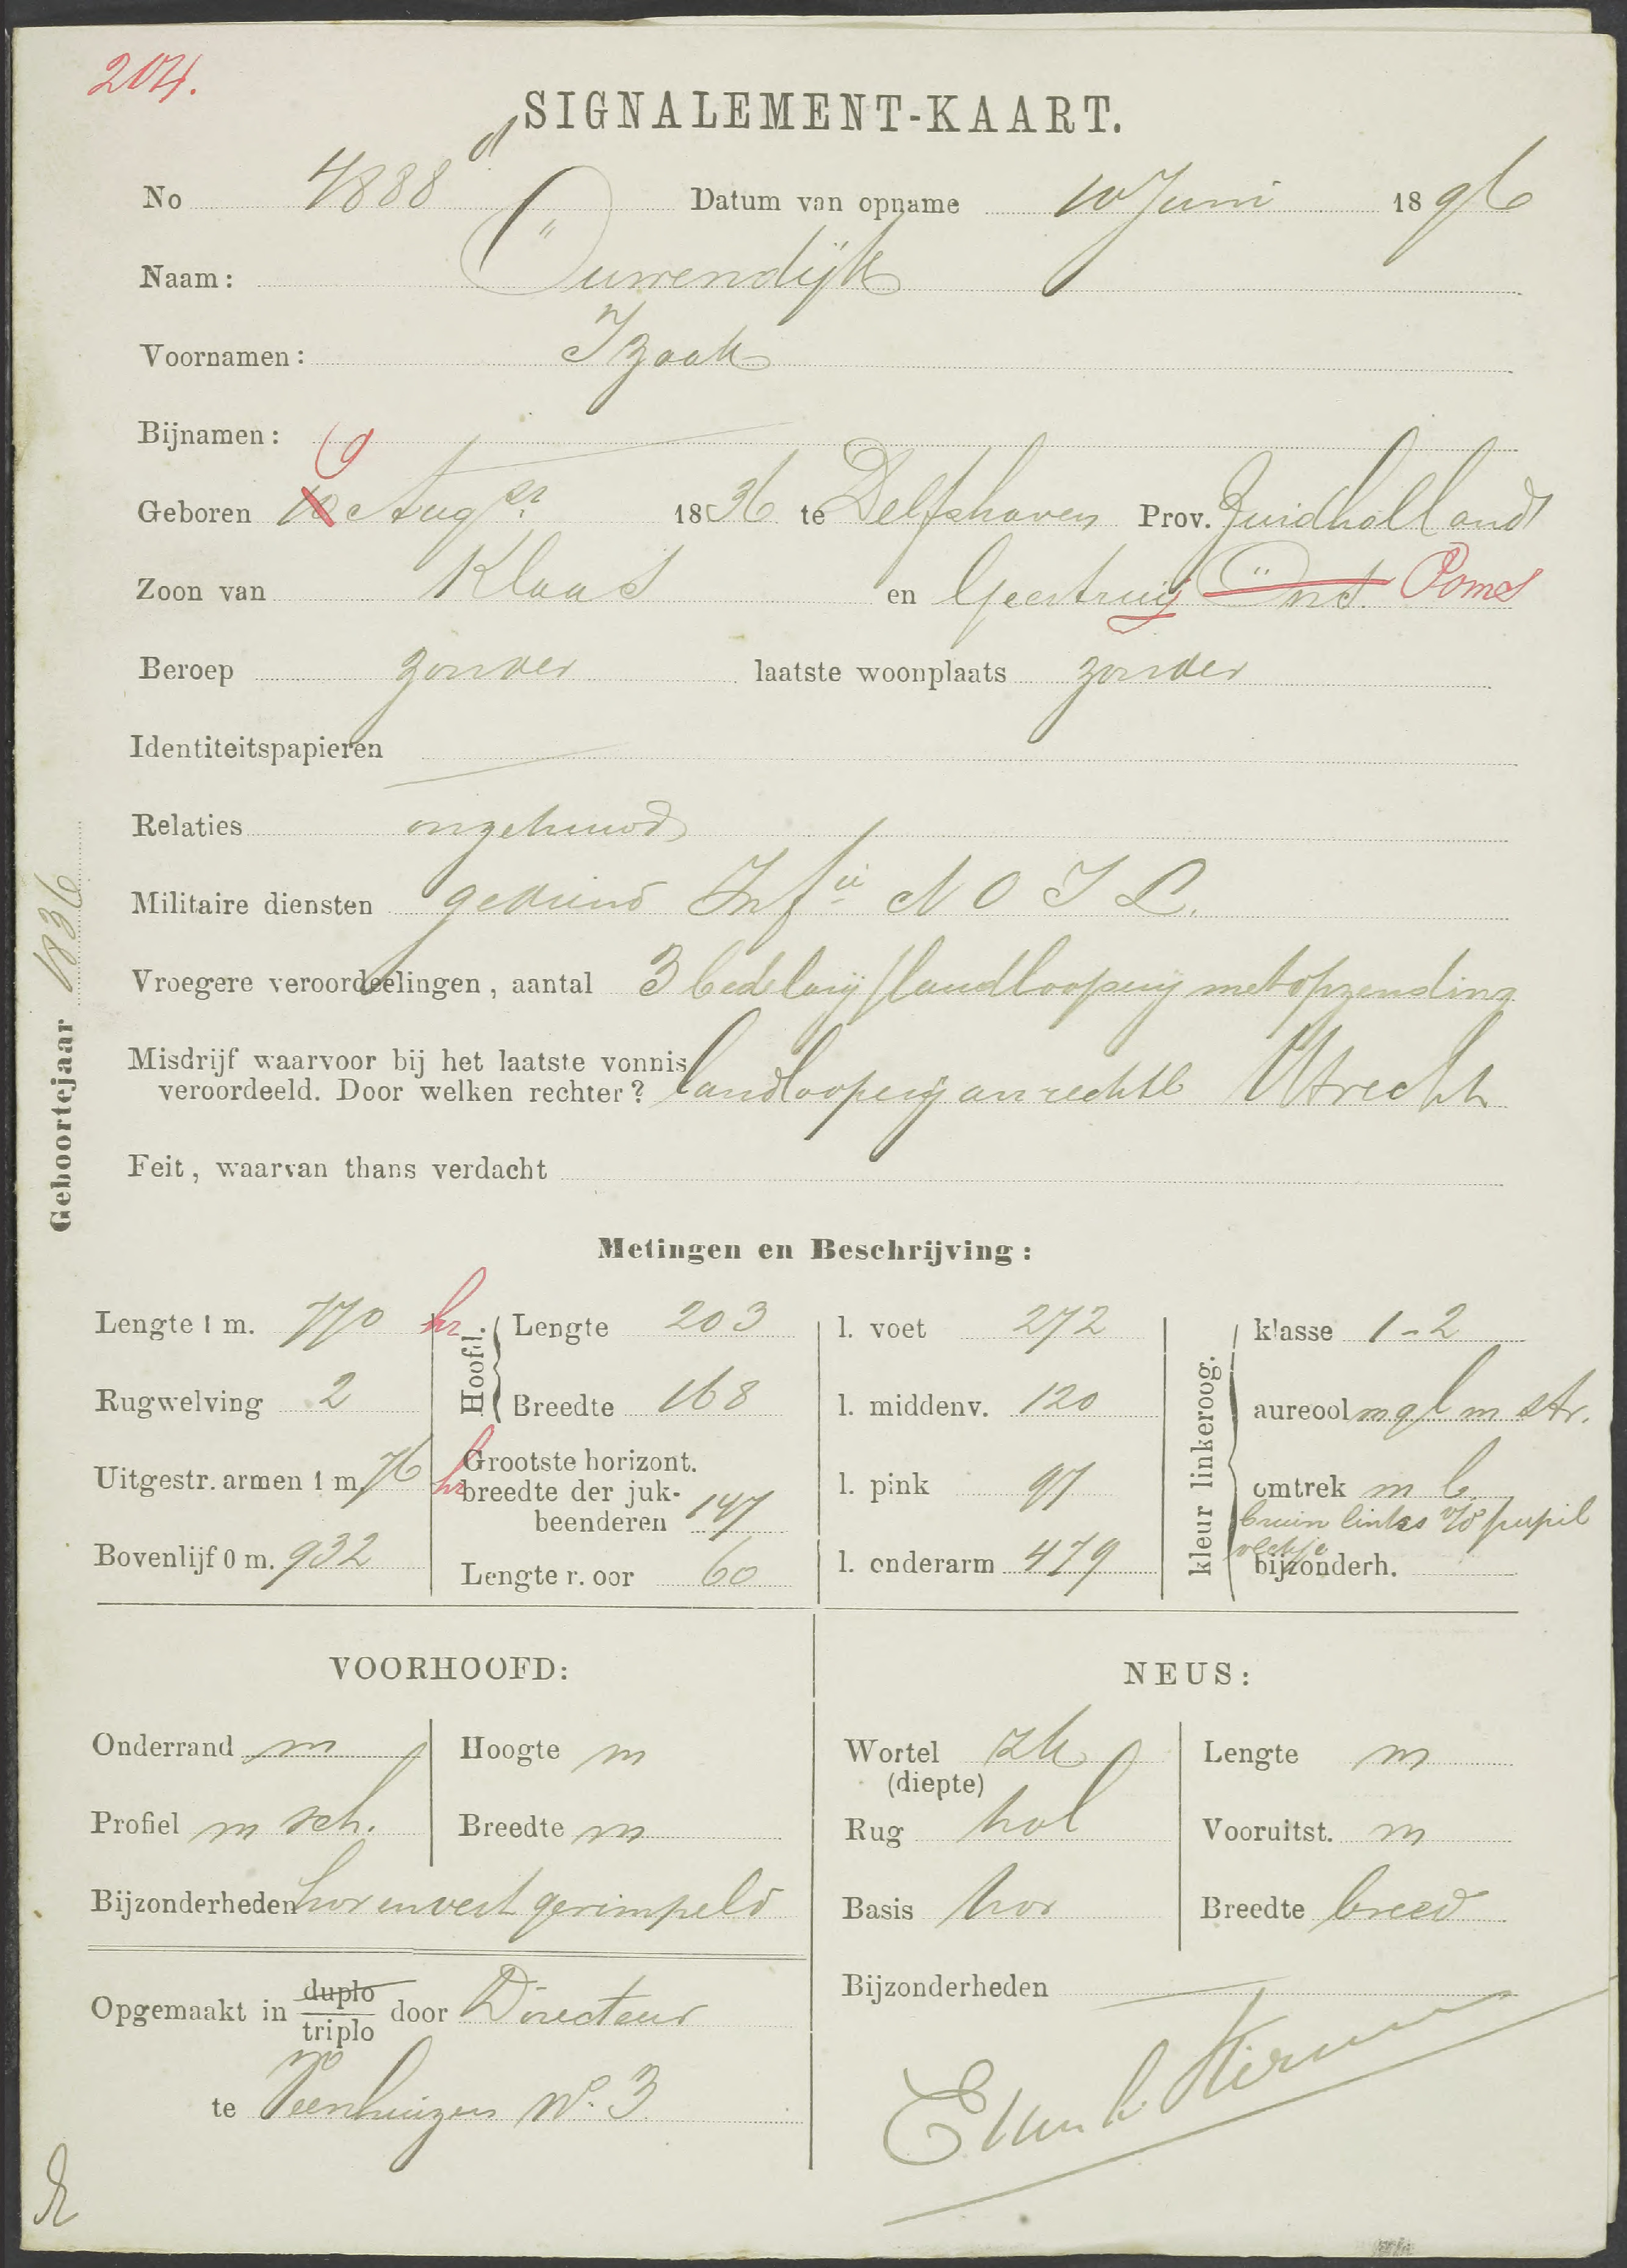 204.
SIGNALEMENT-KAART.
No 4888 d Datum van opname 10 Juni 1896
Naam: Ouwendijk
Voornamen: Izaak
Bijnamen:
9
Geboren 10 Augs 1836 te Delfshaven Prov. Zuidholland
Zoon van Klaas en Geertruij Ons Poms
Beroep zonder laatste woonplaats zonder
Identiteitspapieren
Relaties ongehuwd
Militaire diensten gediend Infie N O I L.
Vroegere veroordeelingen, aantal 3 bedelarij/landlooperij met opzending
Misdrijf waarvoor bij het laatste vonnis
veroordeeld. Door welken rechter? landlooperij arr rechtb Utrecht
Feit, waarvan thans verdacht
Geboortejaar 1836
Metingen en Beschrijving:
Lengte 1 m. 770 hr Hoofd. Lengte 203 l. voet 272 kleur linkeroog. klasse 1-2
Rugwelving 2 Breedte 168 l. middenv. 120 aureool m gl m str.
Uitgestr. armen 1 m. 76 hr Grootste horizont. breedte der juk-beenderen 147 l. pink 97 omtrek m b.
bruin links v/d pupil
vlekje
Bovenlijf 0 m. 932 Lengte r. oor 60 l. onderarm 479 bijzonderh.
VOORHOOFD:
Onderrand m Hoogte m
Profiel m sch. Breedte m
Bijzonderheden hor en vert gerimpeld
NEUS:
Wortel (diepte) zk Lengte m
Rug hol Vooruitst. m
Basis hor Breedte breed
Bijzonderheden
Opgemaakt in duplo triplo door Directeur
te Veenhuizen No. 3